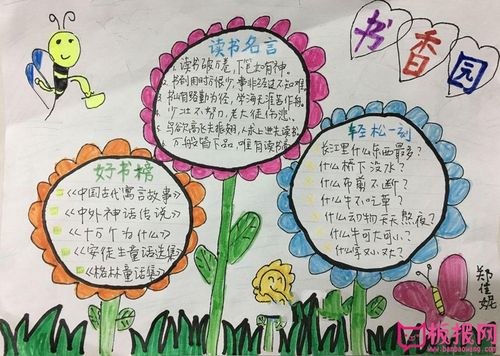 书香园
读书名言
1、读书破万卷，下笔如有神。
2、书到用时方恨少，事非经过不知难。
3、书山有路勤为径，学海无涯苦作舟。
4、少壮不努力，老大徒伤悲。
5、鸟欲高飞先振翅，人求上进先读书。
6、万般皆下品，唯有读书高。
好书榜
《中国古代寓言故事》
《中外神话传说》
《十万个为什么》
《安徒生童话选集》
《格林童话集》
轻松一刻
长江里什么东西最多？
什么桥下没水？
什么布剪不断？
什么牛不吃草？
什么动物天天熬夜？
什么牛可大可小？
什么字小大？
郑佳妮
板报网
www.banbaowang.com